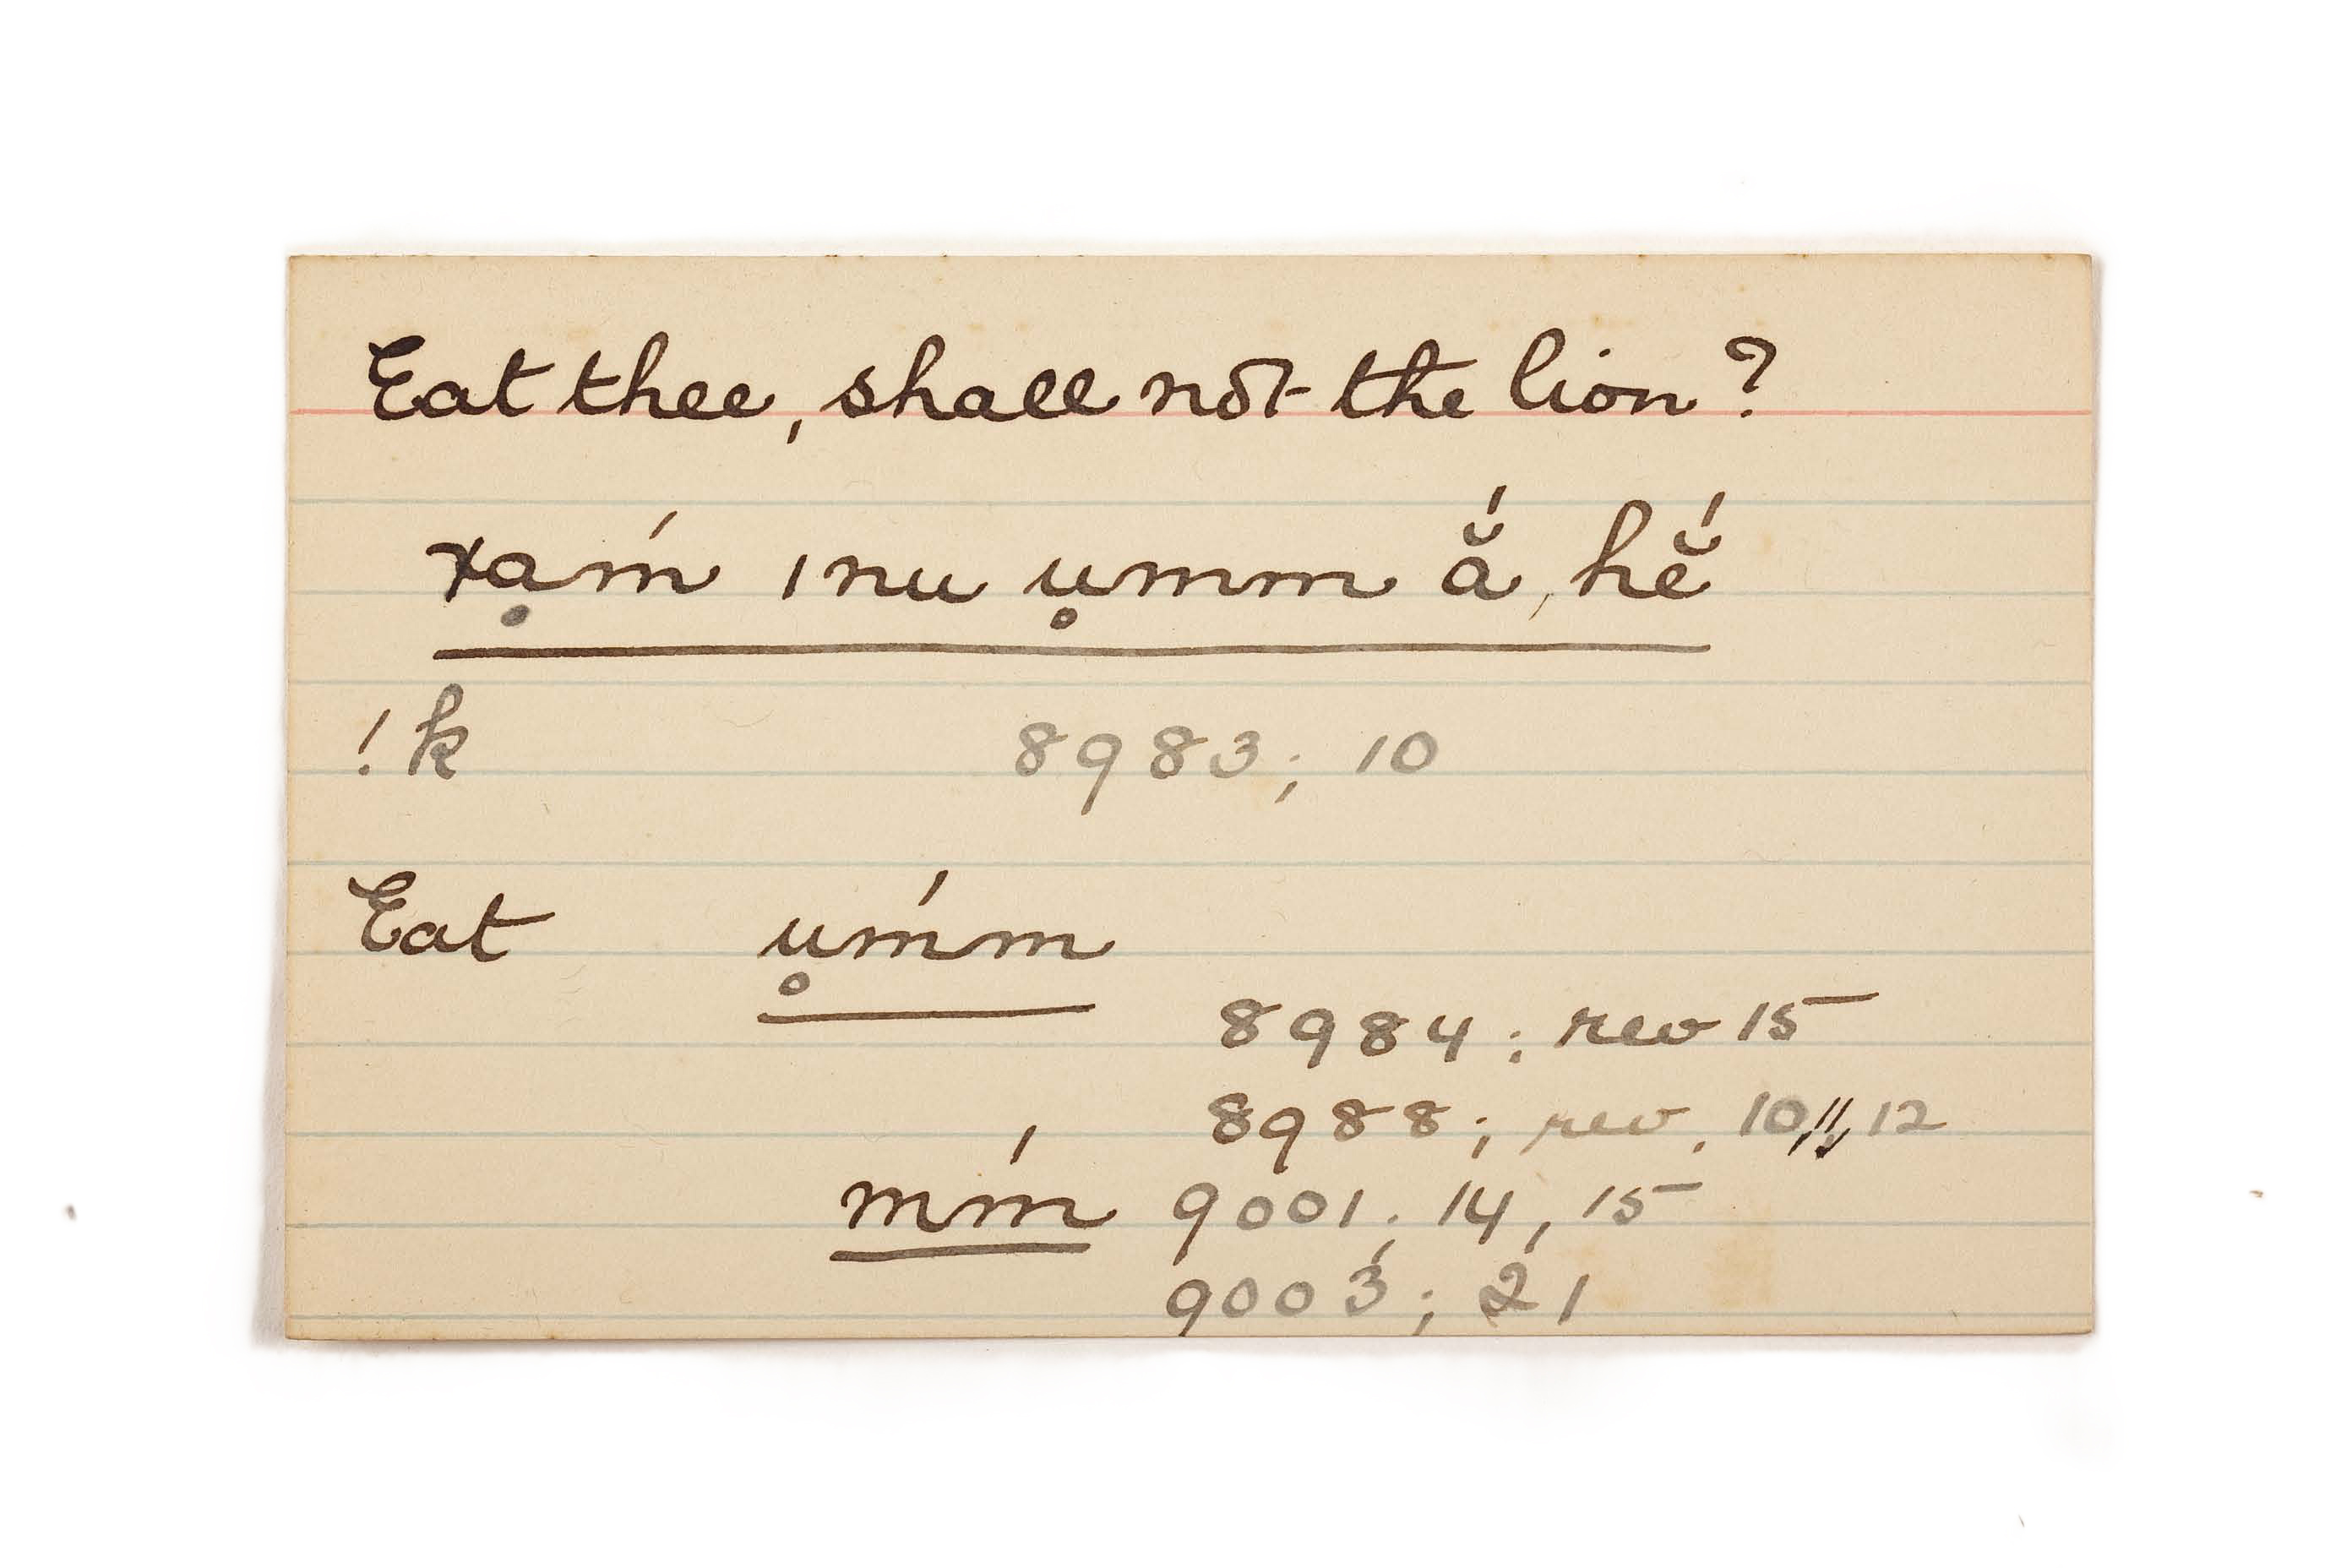 Eat thee, shall not the lion?
χḁḿ ı nu u̥mm ắ, hĕ́
!k 8983; 10
Eat u̥ḿm
8984; rev 15
8988; rev. 10, 11, 12
mḿ 9001; 14, 15
9003; 21